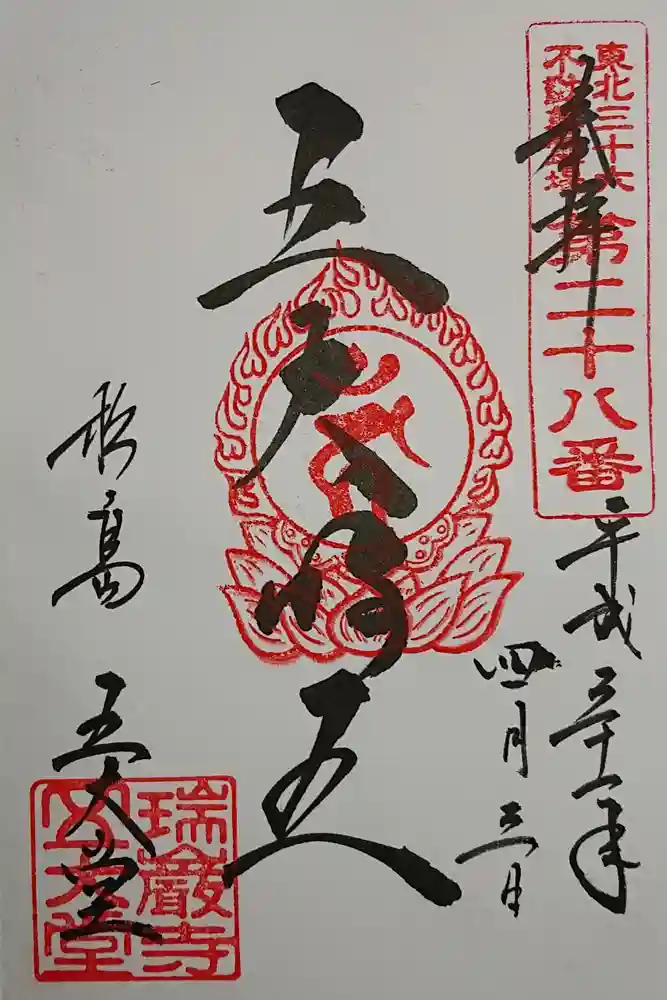 東北三十六
不動尊霊場
第二十八番
奉拝
平成三十一年
四月三日
五大明王
松島
五大堂
瑞巌寺
五大堂